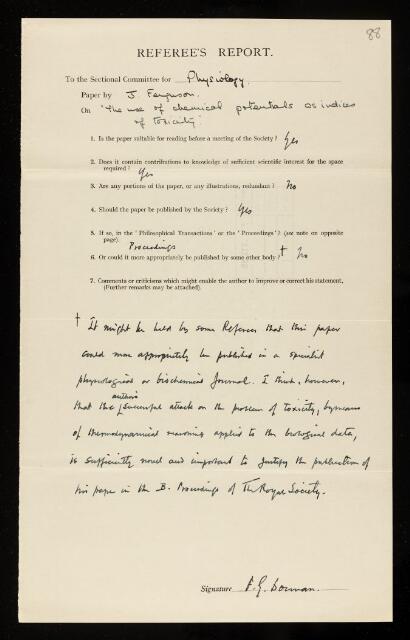 88
REFEREE'S REPORT.
To the Sectional Committee for Physiology.
Paper by J Ferguson.
On "The use of chemical potentials as indices
of toxicity"
1. Is the paper suitable for reading before a meeting of the Society? Yes
2. Does it contain contributions to knowledge of sufficient scientific interest for the space
required? Yes
3. Are any portions of the paper, or any illustrations, redundant? No
4. Should the paper be published by the Society? Yes
5. If so, in the 'Philosophical Transactions' or the 'Proceedings'? (see note on opposite
page). Proceedings
6. Or could it more appropriately be published by some other body? † No
7. Comments or criticisms which might enable the author to improve or correct his statement.
(Further remarks may be attached).
† It might be held by some Referees that this paper
could more appropriately be published in a specialist
physiological or biochemical Journal. I think, however,
that the author's successful attack on the problem of toxicity, by means
of thermodynamical reasoning applied to the biological data,
is sufficiently novel and important to justify the publication of
his paper in the B. Proceedings of The Royal Society.
Signature F.G. Donnan.